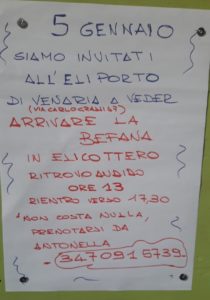 5 GENNAIO
SIAMO INVITATI
ALL'ELIPORTO
DI VENARIA A VEDER
ARRIVARE LA
BEFANA
IN ELICOTTERO
RITROVO AUDIDO
ORE 13
RIENTRO VERSO 17,30
NON COSTA NULLA,
PRENOTARSI DA
ANTONELLA
- 3470915739.